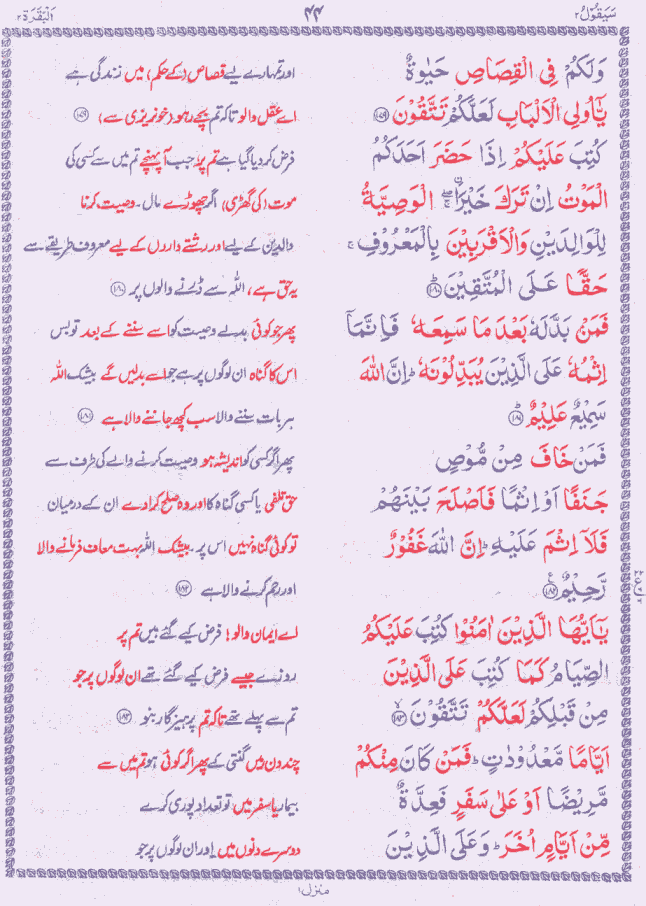 سَيَقُوۡلُ ٢ ٤٤ اَلۡبَقَرَة ٢
وَلَكُمۡ فِى الۡقِصَاصِ حَيٰوةٌ اور تمہارے لیے قصاص (کے حکم) میں زندگی ہے
يّٰٓاُولِى الۡاَلۡبَابِ لَعَلَّكُمۡ تَتَّقُوۡنَ ﴿۱۷۹﴾ اے عقل والو تاکہ تم بچے رہو (خونریزی سے) ﴿۱۷۹﴾
كُتِبَ عَلَيۡكُمۡ اِذَا حَضَرَ اَحَدَكُمُ فرض کر دیا گیا ہے تم پر، جب آ پہنچے تم میں سے کسی کی
الۡمَوۡتُ اِنۡ تَرَكَ خَيۡرًا ۖۚ الۡوَصِيَّةُ موت (کی گھڑی) اگر چھوڑے مال۔ وصیت کرنا
لِلۡوَالِدَيۡنِ وَالۡاَقۡرَبِيۡنَ بِالۡمَعۡرُوۡفِ ۚ والدین کے لیے اور رشتے داروں کے لیے معروف طریقے سے
حَقًّا عَلَى الۡمُتَّقِيۡنَ ﴿۱۸۰﴾ یہ حق ہے، اللہ سے ڈرنے والوں پر ﴿۱۸۰﴾
فَمَنۡۢ بَدَّلَهٗ بَعۡدَ مَا سَمِعَهٗ فَاِنَّمَاۤ پھر جو کوئی بدلے وصیت کو اسے سننے کے بعد تو بس
اِثۡمُهٗ عَلَى الَّذِيۡنَ يُبَدِّلُوۡنَهٗ ؕ اِنَّ اللّٰهَ اس کا گناہ ان لوگوں پر ہے جو اسے بدلیں گے بیشک اللہ
سَمِيۡعٌ عَلِيۡمٌ ﴿۱۸۱﴾ ہر بات سننے والا سب کچھ جاننے والا ہے ﴿۱۸۱﴾
فَمَنۡ خَافَ مِنۡ مُّوۡصٍ پھر اگر کسی کو اندیشہ ہو وصیت کرنے والے کی طرف سے
جَنَفًا اَوۡ اِثۡمًا فَاَصۡلَحَ بَيۡنَهُمۡ حق تلفی یا کسی گناہ کا اور وہ صلح کرا دے ان کے درمیان
فَلَاۤ اِثۡمَ عَلَيۡهِ ؕ اِنَّ اللّٰهَ غَفُوۡرٌ تو کوئی گناہ نہیں اس پر۔ بیشک اللہ بہت معاف فرمانے والا
رَّحِيۡمٌ ﴿۱۸۲﴾ اور رحم کرنے والا ہے ﴿۱۸۲﴾
يٰٓاَيُّهَا الَّذِيۡنَ اٰمَنُوۡا كُتِبَ عَلَيۡكُمُ اے ایمان والو! فرض کیے گئے ہیں تم پر
الصِّيَامُ كَمَا كُتِبَ عَلَى الَّذِيۡنَ روزے جیسے فرض کیے گئے تھے ان لوگوں پر جو
مِنۡ قَبۡلِكُمۡ لَعَلَّكُمۡ تَتَّقُوۡنَ ۙ ﴿۱۸۳﴾ تم سے پہلے تھے تاکہ تم پرہیزگار بنو ﴿۱۸۳﴾
اَيَّامًا مَّعۡدُوۡدٰتٍ ؕ فَمَنۡ كَانَ مِنۡكُمۡ چند دن ہیں گنتی کے پھر اگر کوئی ہو تم میں سے
مَّرِيۡضًا اَوۡ عَلٰى سَفَرٍ فَعِدَّةٌ بیمار یا سفر میں تو تعداد پوری کرے
مِّنۡ اَيَّامٍ اُخَرَ ؕ وَعَلَى الَّذِيۡنَ دوسرے دنوں میں اور ان لوگوں پر جو
منزل ١